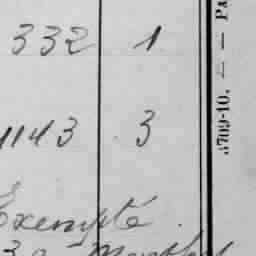 332 1
1143 3
Exempté
3709-10. — — Pa